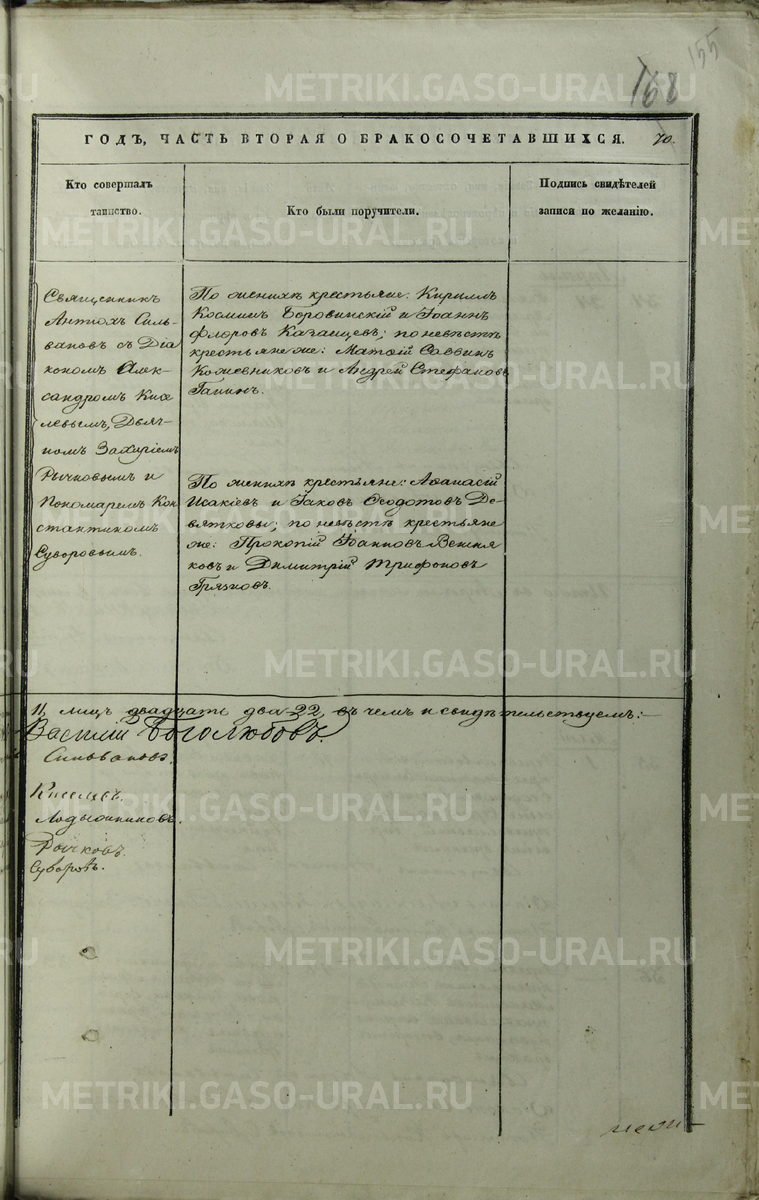 155
168
ГОДЪ, ЧАСТЬ ВТОРАЯ О БРАКОСОЧЕТАВШИХСЯ.
70.
Кто совершалъ
таинство.
Кто были поручители.
Подпись свидѣтелей
записи по желанію.
Священникъ
Антіохъ Силь-
вановъ съ Діа
кономъ Алек-
сандромъ Кисе
левымъ, Дьяч-
комъ Захаріемъ
Рычковымъ и
Пономаремъ Кон
стантиномъ
Суворовымъ.
По женихѣ крестьяне: Кириллъ
Косминъ Боровинскій и Іоаннъ
Флоровъ Казанцевъ; по невѣстѣ
крестьяне же: Матѳій Саввинъ
Кожевниковъ и Андрей Стефановъ
Гапинъ.
По женихѣ крестьяне: Аѳанасій
Исакіевъ и Іаковъ Ѳеодотовъ Де-
вятковы; по невѣстѣ крестьяне
же: Прокопій Іоанновъ Вешня
ковъ и Димитрій Трифоновъ
Грязновъ.
11, лицъ двадцать два 22, въ чемъ и свидѣтельствуемъ:
Василій Боголюбовъ.
Сильвановъ.
Киселевъ.
Ладыжниковъ.
Рычковъ.
Суворовъ.
METRIKI.GASO-URAL.RU